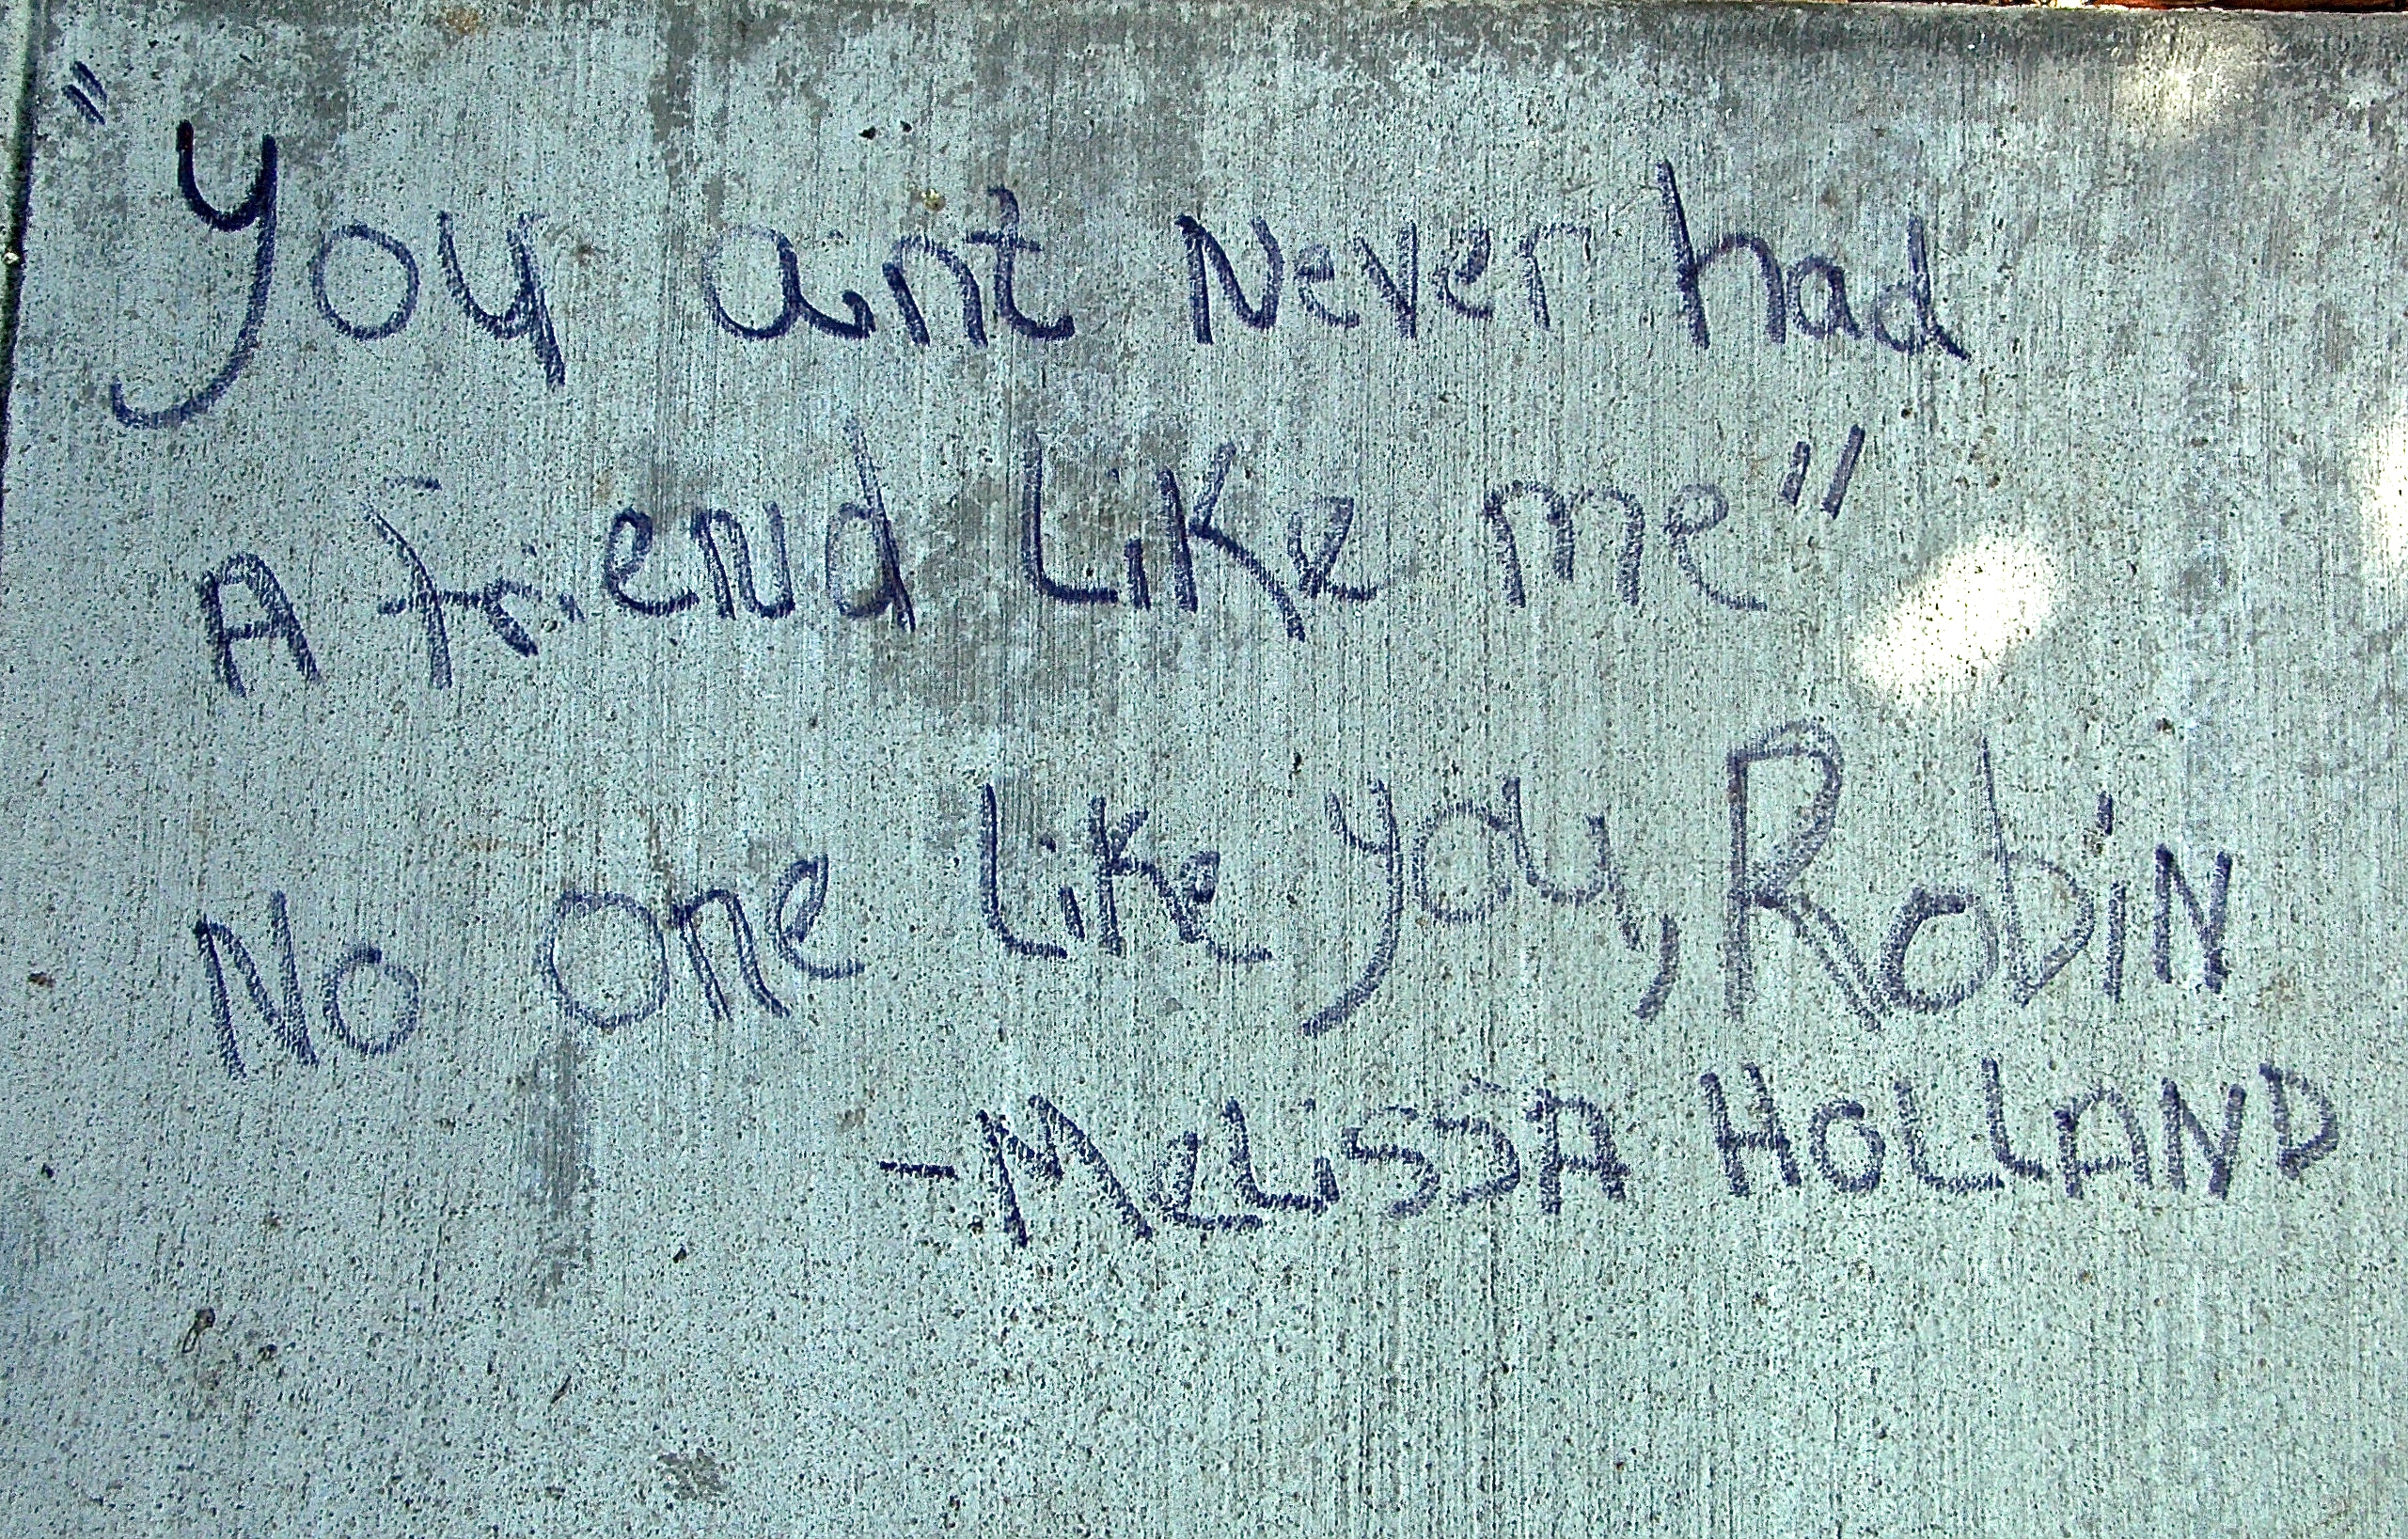 "You aint Never had
A friend Like me"
No one Like you, RobiN
-MeLissA HoLLAND